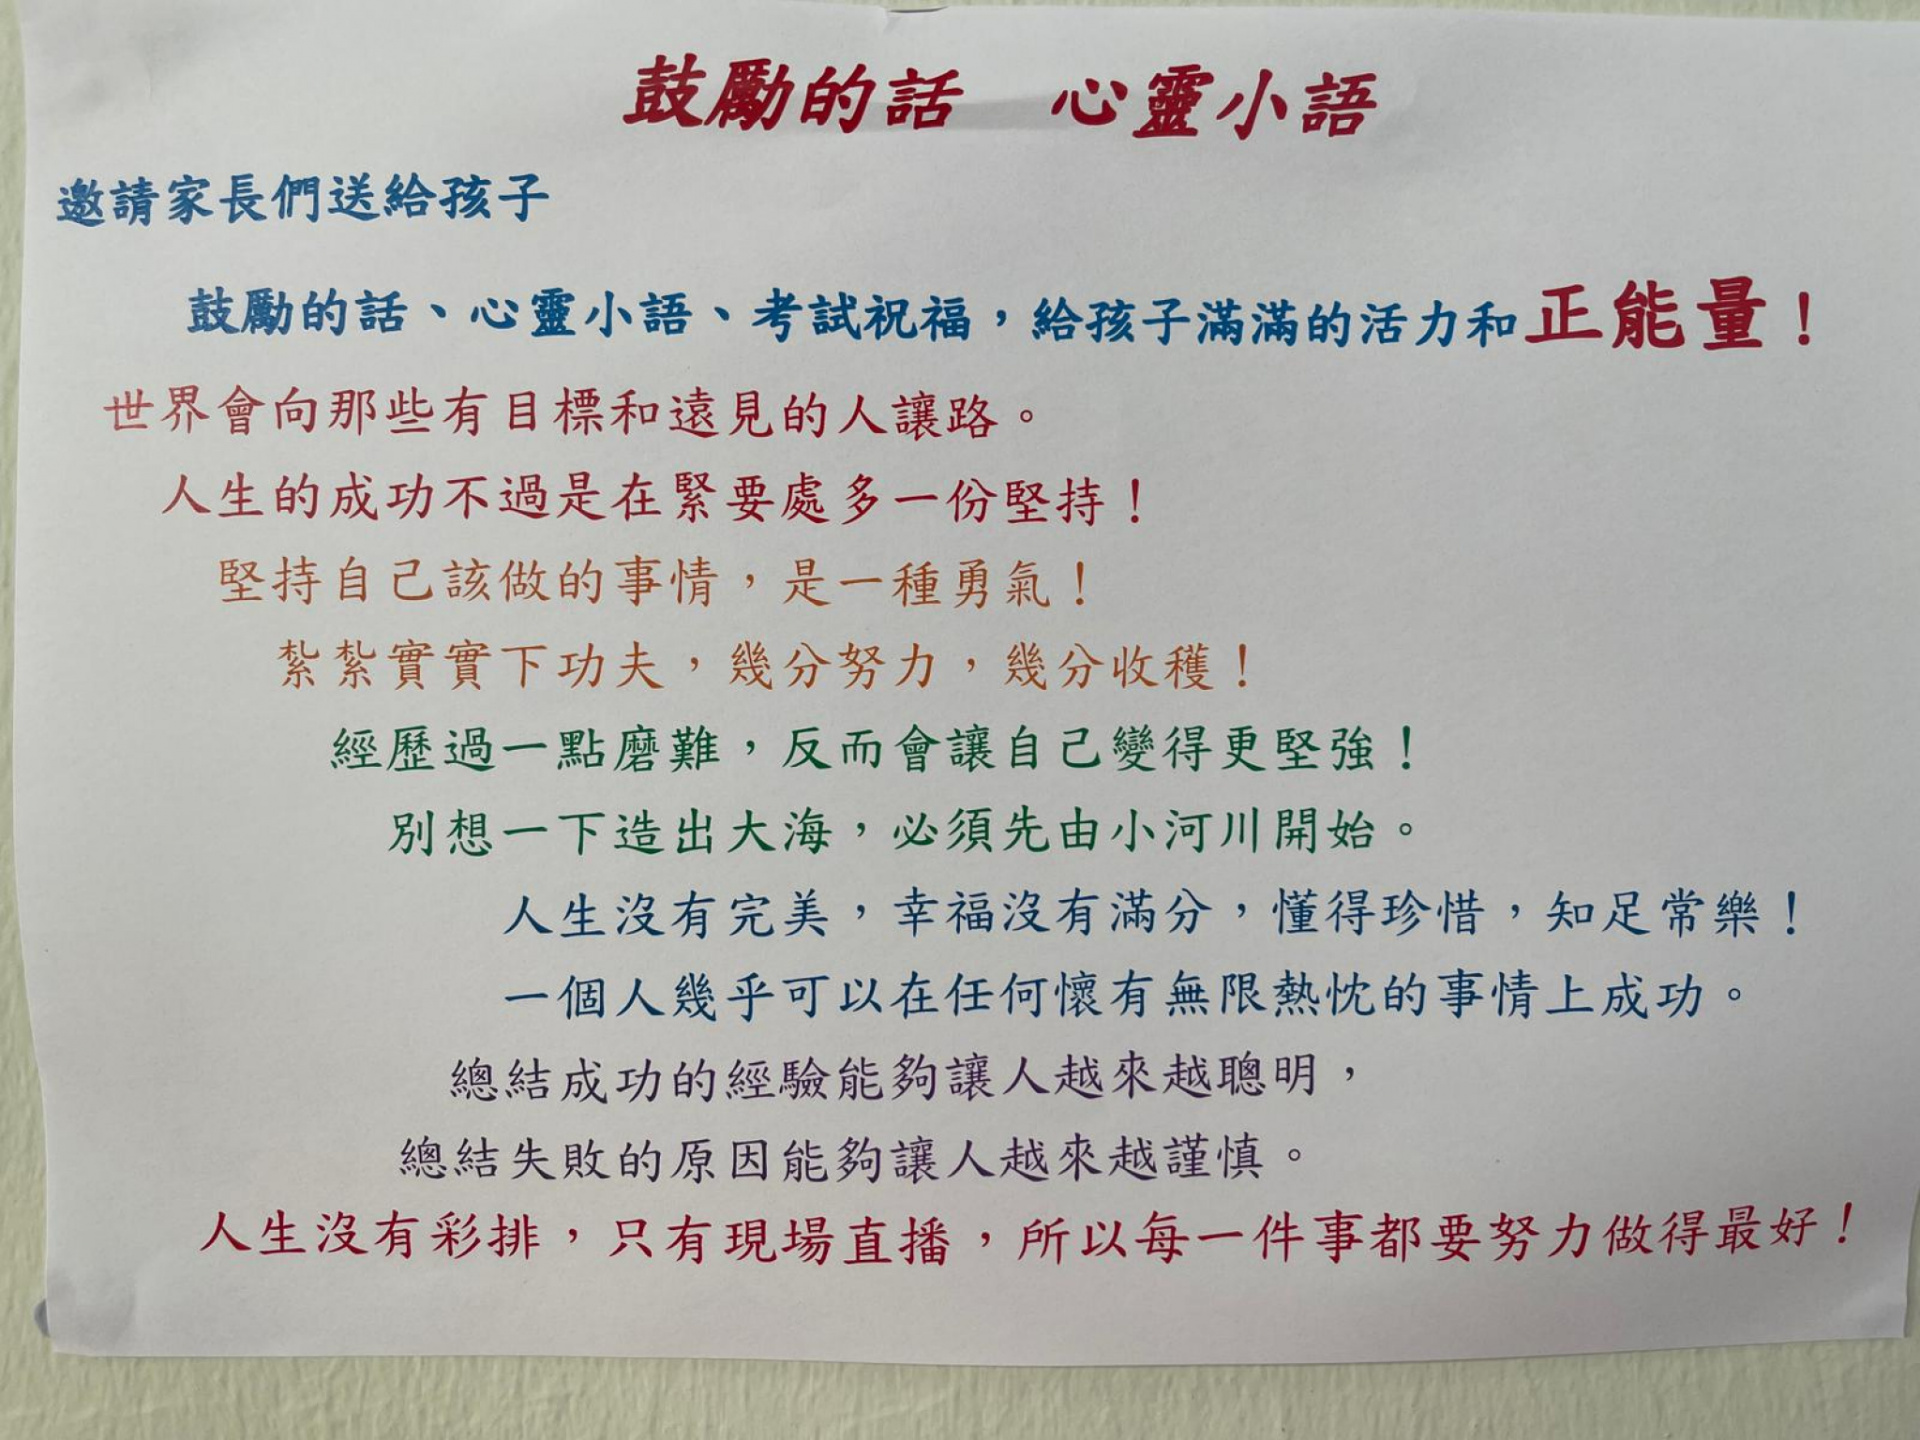 鼓勵的話　心靈小語
邀請家長們送給孩子
鼓勵的話、心靈小語、考試祝福，給孩子滿滿的活力和正能量！
世界會向那些有目標和遠見的人讓路。
人生的成功不過是在緊要處多一份堅持！
堅持自己該做的事情，是一種勇氣！
紮紮實實下功夫，幾分努力，幾分收穫！
經歷過一點磨難，反而會讓自己變得更堅強！
別想一下造出大海，必須先由小河川開始。
人生沒有完美，幸福沒有滿分，懂得珍惜，知足常樂！
一個人幾乎可以在任何懷有無限熱忱的事情上成功。
總結成功的經驗能夠讓人越來越聰明，
總結失敗的原因能夠讓人越來越謹慎。
人生沒有彩排，只有現場直播，所以每一件事都要努力做得最好！